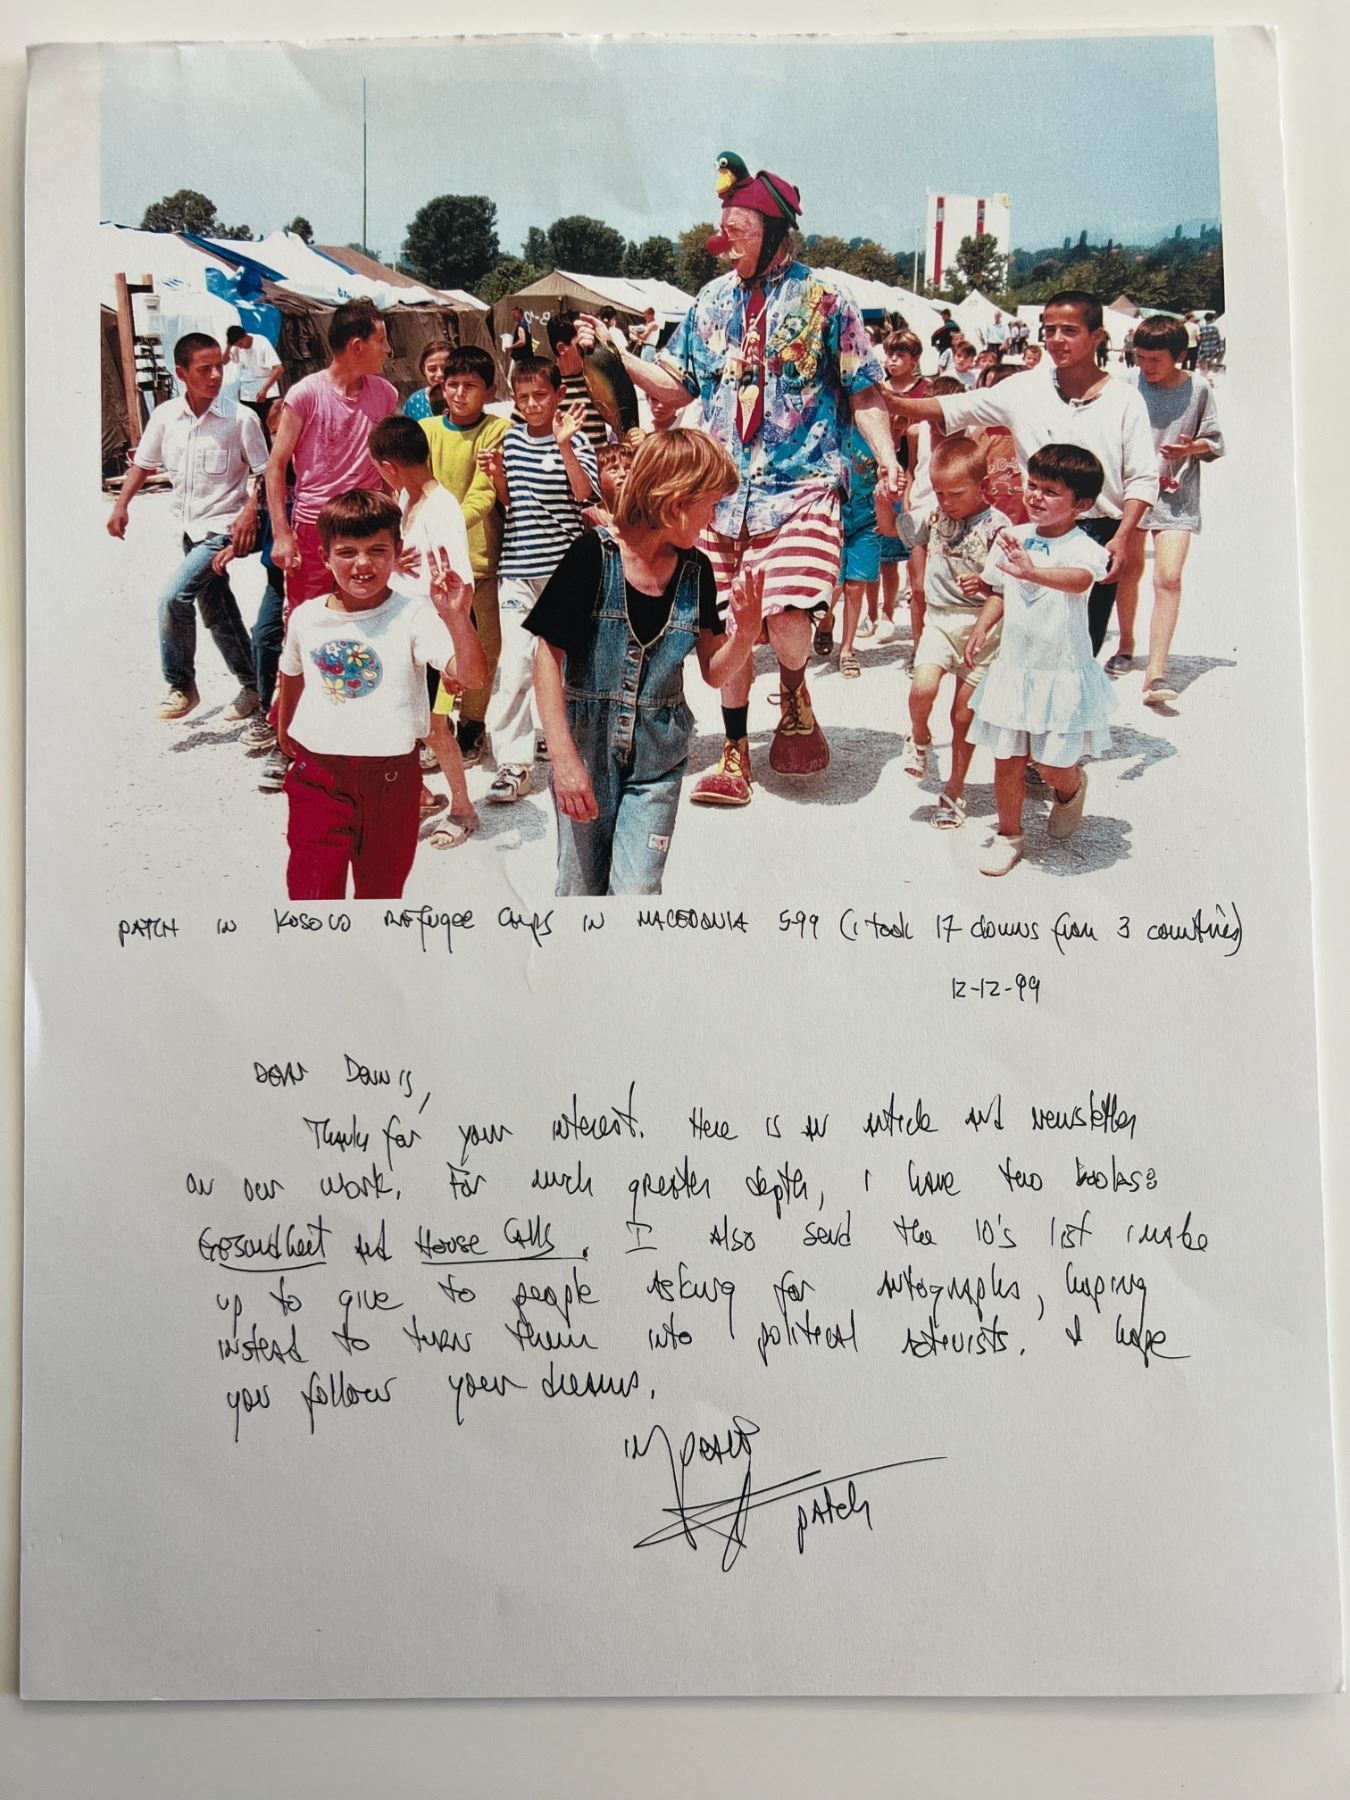 PATCH IN KOSOVO REFUGEE CAMPS IN MACEDONIA 5-99 (i took 17 clowns from 3 countries)
12-12-99
Dear Dennis,
Thanks for your interest. Here is an article and newsletter
on our work. For much greater depth, i have two books:
Gesundheit and House Calls. I also send the 10's list i make
up to give to people asking for autographs, hoping
instead to turn them into political activists. I hope
you follow your dreams.
in peace
patch